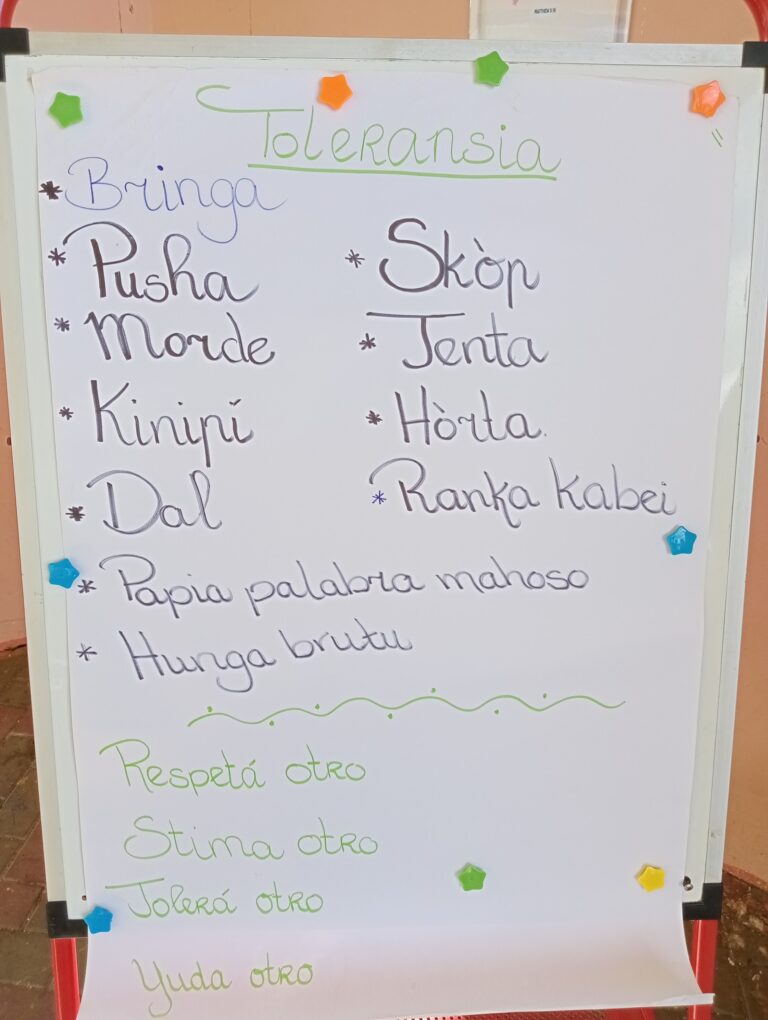 Toleransia
* Bringa
* Pusha
* Morde
* Kinipí
* Dal
* Skòp
* Tenta
* Hòrta.
* Ranka kabei
* Papia palabra mahoso
* Hunga brutu
Respetá otro
Stima otro
Tolerá otro
Yuda otro